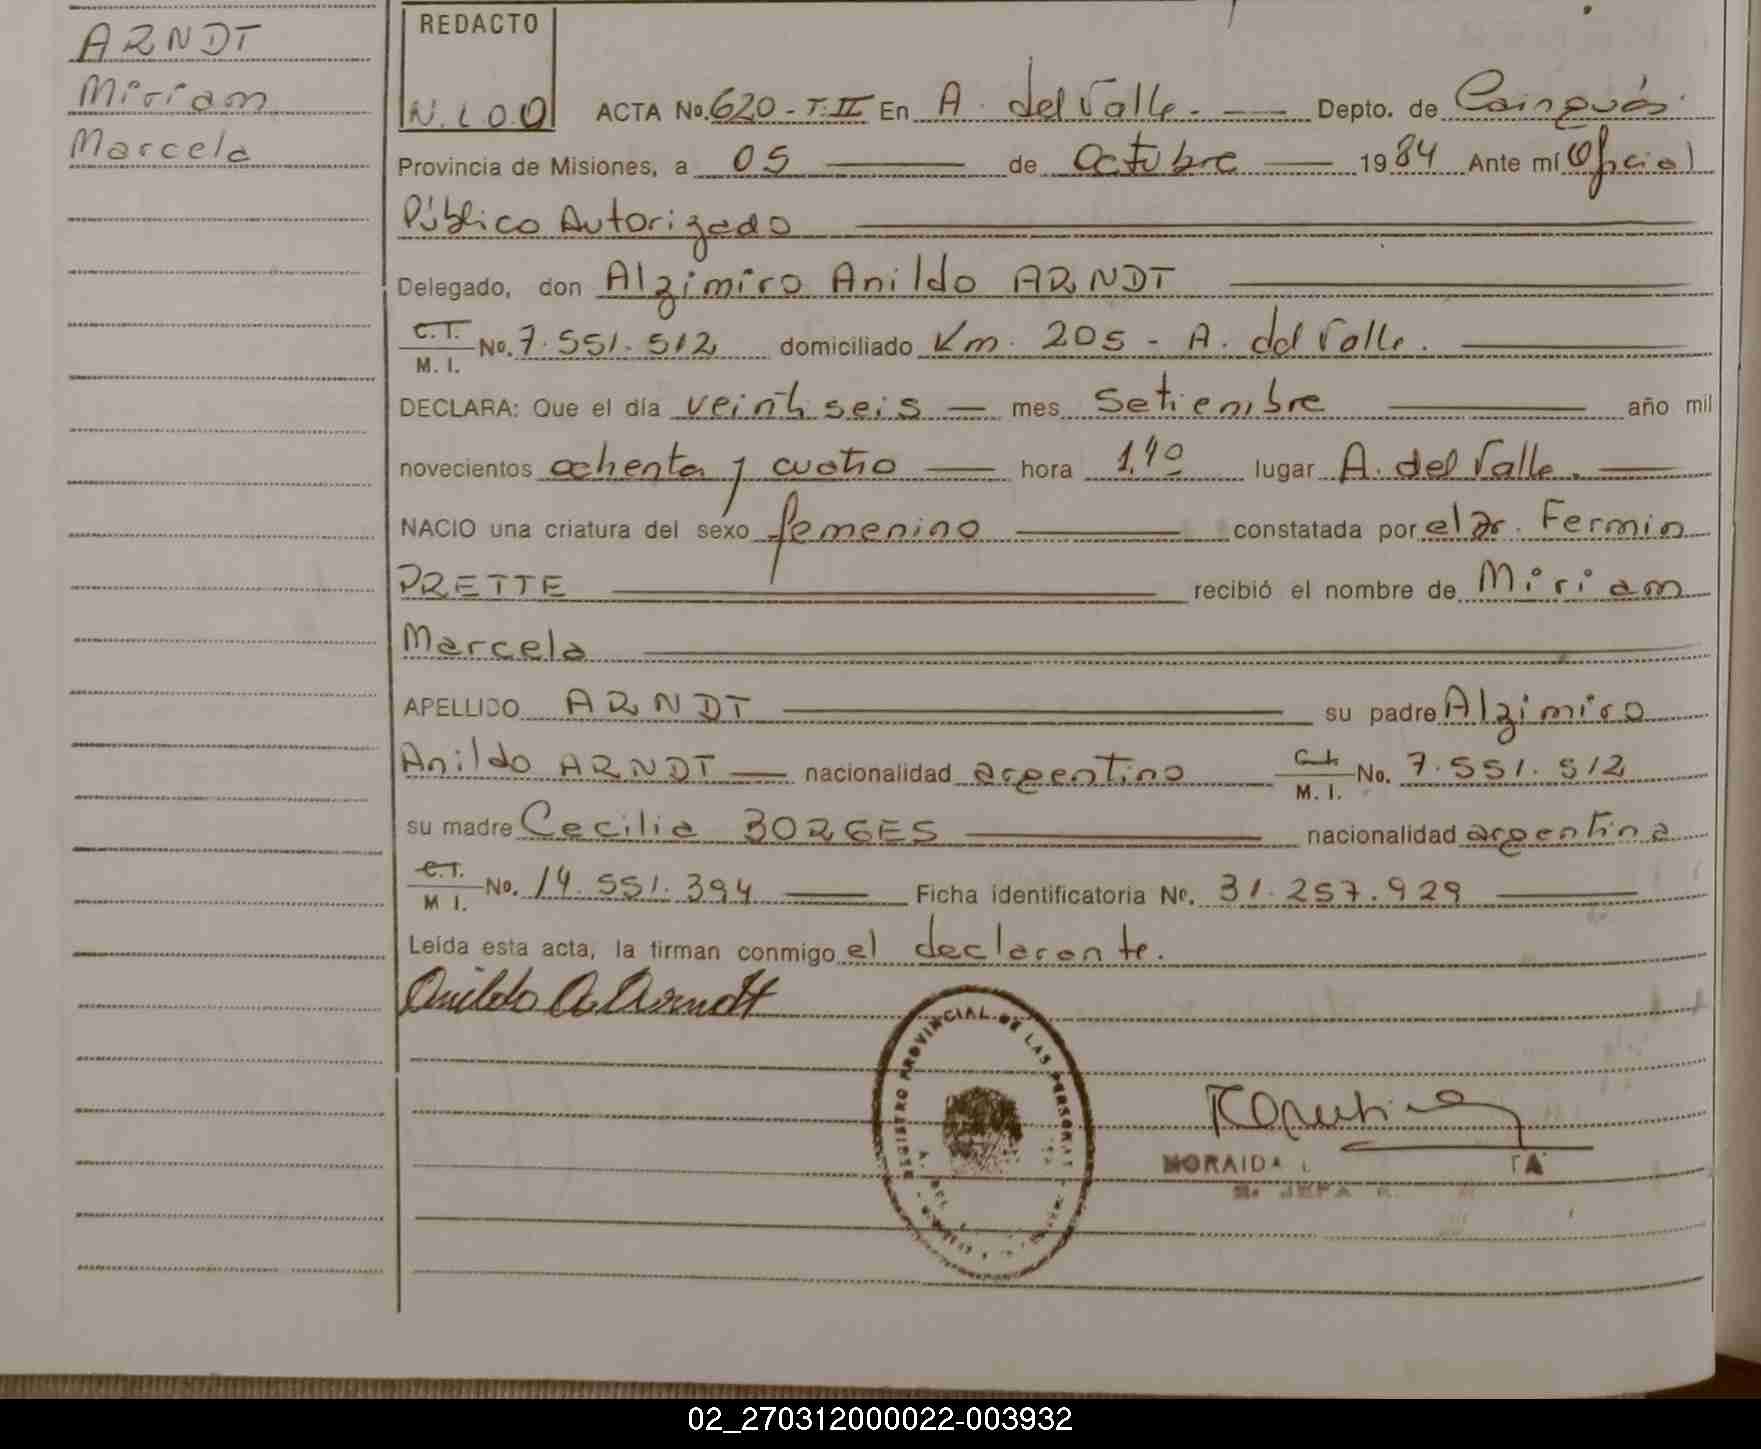 ARNDT
Miriam
Marcela
REDACTO
N.L.O.O
ACTA No. 620 - T.II En A. del Valle. — Depto. de Cainguás
Provincia de Misiones, a 05 — de Octubre — 1984 Ante mí Oficial
Público Autorizado
Delegado, don Alzimiro Anildo ARNDT
C.T.
M. I. No. 7.551.512 domiciliado Km. 205 - A. del Valle.
DECLARA: Que el día veintiseis — mes Setiembre — año mil
novecientos ochenta y cuatro — hora 1,40 lugar A. del Valle. —
NACIO una criatura del sexo femenino — constatada por el Dr. Fermin
PRETTE — recibió el nombre de Miriam
Marcela
APELLIDO ARNDT — su padre Alzimiro
Anildo ARNDT — nacionalidad argentino M. I. No. 7.551.512
su madre Cecilia BORGES — nacionalidad argentina
C.T.
M I. No. 14.551.394 — Ficha identificatoria No. 31.257.929 —
Leída esta acta, la firman conmigo el declarante.
Anildo A. Arndt
REGISTRO PROVINCIAL DE LAS PERSONAS
MORAIDA
JEFA
02_270312000022-003932